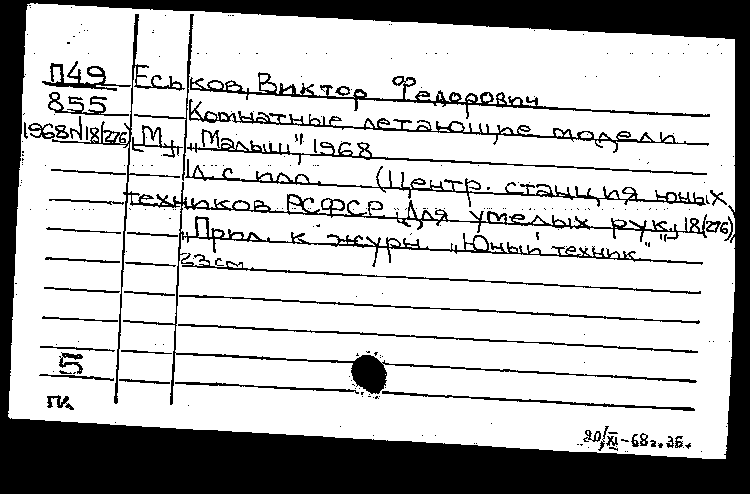 П49 Еськов, Виктор Федорович
855 Комнатные летающие модели.
1968 N18(276) [М.], „Малыш", 1968
1л. с илл. (Центр. станция юных
техников РСФСР „Для умелых рук", 18(276),
„Прил. к журн. „Юный техник".
23см.
5
ПК
20/XI-68г. зб.